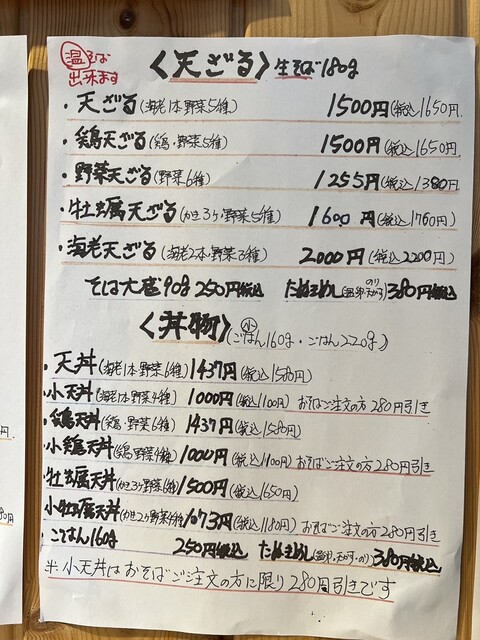 温そば
出来ます
〈天ざる〉生そば180g
・天ざる(海老1本・野菜5種) 1500円(税込1650円)
・鶏天ざる(鶏・野菜5種) 1500円(税込1650円)
・野菜天ざる(野菜6種) 1255円(税込1380円)
・牡蠣天ざる(かき3ヶ・野菜5種) 1600円(税込1760円)
・海老天ざる(海老2本・野菜3種) 2000円(税込2200円)
そば大盛90g 250円税込 たぬきめし 380円税込
〈丼物〉(小ごはん160g・ごはん220g)
・天丼(海老1本・野菜6種) 1437円(税込1580円)
・小天丼(海老1本・野菜4種) 1000円(税込1100円) おそばご注文の方280円引き
・鶏天丼(鶏・野菜6種) 1437円(税込1580円)
・小鶏天丼(鶏・野菜4種) 1000円(税込1100円) おそばご注文の方280円引き
・牡蠣天丼(かき3ヶ・野菜6種) 1500円(税込1650円)
・小牡蠣天丼(かき2ヶ・野菜4種) 1073円(税込1180円) おそばご注文の方280円引き
・ごはん160g 250円税込 たぬきめし 380円税込
※小天丼はおそばご注文の方に限り280円引きです
円
80円